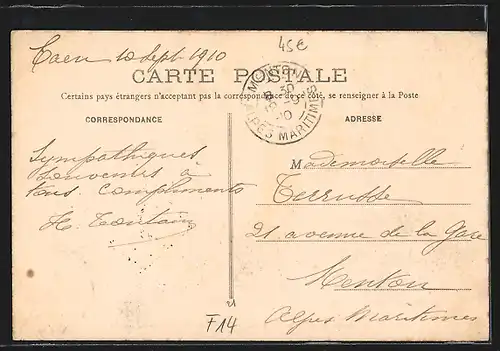 Caen 10 Sept 1910
45€
CARTE POSTALE
Certains pays étrangers n'acceptant pas la correspondance de ce côté, se renseigner à la Poste
CORRESPONDANCE
ADRESSE
ALPES MARITIMES
Sympathiques
souvenirs à
tous. Compliments
Mademoiselle
21 avenue de la Gare
Menton
Alpes Maritimes
F14